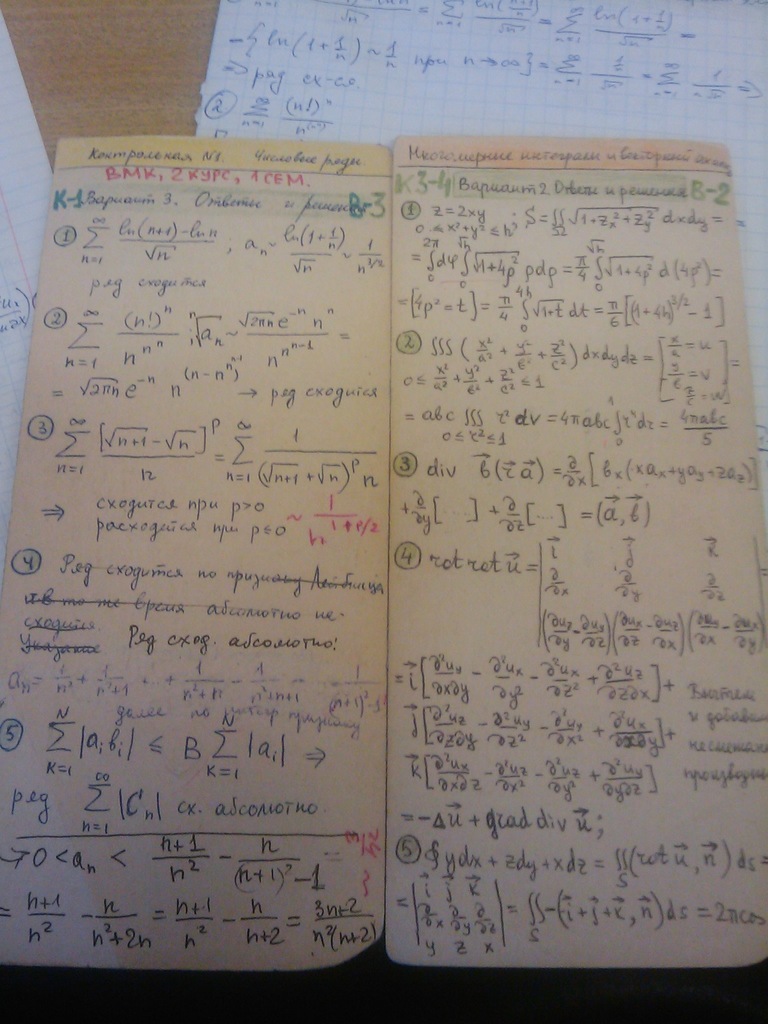 = \sum_{n=1}^{\infty} \frac{ln(1+\frac{1}{n})}{\sqrt{n}} =
- \{ ln(1+\frac{1}{n}) ~ \frac{1}{n} при n→∞ \} = \sum_{n=1}^{∞} \frac{\frac{1}{n}}{\sqrt{n}} = \sum_{n=1}^{∞} \frac{1}{n\sqrt{n}} ⇒
⇒ ряд сх-ся.
② \sum_{n=1}^{∞} \frac{(n!)^n}{n^{(n^n)}}
Контрольная №1. Числовые ряды
ВМК, 2 КУРС, 1 СЕМ.
К-1 Вариант 3. Ответы и решения В-3
① \sum_{n=1}^{∞} \frac{ln(n+1)-ln n}{\sqrt{n}} ; a_n ~ \frac{ln(1+\frac{1}{n})}{\sqrt{n}} ~ \frac{1}{n^{3/2}}
ряд сходится
② \sum_{n=1}^{∞} \frac{(n!)^n}{n^{n^n}} ; \sqrt[n]{a_n} ~ \frac{\sqrt{2πn} e^{-n} n^n}{n^{n^{n-1}}} =
= \sqrt{2πn} e^{-n} n^{(n-n^{n-1})} → ряд сходится
③ \sum_{n=1}^{∞} \frac{[\sqrt{n+1}-\sqrt{n}]^p}{n} = \sum_{n=1}^{∞} \frac{1}{(\sqrt{n+1}+\sqrt{n})^p n}
⇒ сходится при p>0
расходится при p≤0 ~ \frac{1}{n^{1+p/2}}
④ Ряд сходится по признаку Лейбница
в то же время абсолютно не-
сходится.
Указание Ряд сход. абсолютно!
a_n = \frac{1}{n^2} + \frac{1}{n^2+1} + .. + \frac{1}{n^2+n} - \frac{1}{n^2+n+1} - - \frac{1}{(n+1)^2-1}
далее по признаку
⑤ \sum_{K=1}^{N} |a_i b_i| ≤ B \sum_{K=1}^{N} |a_i| ⇒
ряд \sum_{n=1}^{∞} |C_n| сх. абсолютно.
→ 0 < a_n < \frac{n+1}{n^2} - \frac{n}{(n+1)^2-1} = \frac{3}{n^2}
= \frac{n+1}{n^2} - \frac{n}{n^2+2n} = \frac{n+1}{n^2} - \frac{n}{n+2} = \frac{3n+2}{n^2(n+2)}
Многомерные интегралы и векторный анализ
К3-4 Вариант 2 Ответы и решения В-2
① z=2xy ; S = ∬_Ω \sqrt{1+z_x^2+z_y^2} dxdy =
0 ≤ x²+y² ≤ h
= \int_0^{2π} dφ \int_0^{\sqrt{h}} \sqrt{1+4ρ^2} ρdρ = \frac{π}{4} \int_0^{\sqrt{h}} \sqrt{1+4ρ^2} d(4ρ^2) =
= [4ρ²=t] = \frac{π}{4} \int_0^{4h} \sqrt{1+t} dt = \frac{π}{6} [(1+4h)^{3/2} - 1]
② ∭ (\frac{x^2}{a^2} + \frac{y^2}{b^2} + \frac{z^2}{c^2}) dxdydz = [\frac{x}{a}=u \frac{y}{b}=v \frac{z}{c}=w] =
0 ≤ \frac{x^2}{a^2} + \frac{y^2}{b^2} + \frac{z^2}{c^2} ≤ 1
= abc ∭_{0≤r²≤1} r² dV = 4πabc \int_0^1 r^4 dr = \frac{4πabc}{5}
③ div \vec{b}(\vec{r} \vec{a}) = \frac{∂}{∂x} [b_x(xa_x+ya_y+za_z)]
+ \frac{∂}{∂y} [....] + \frac{∂}{∂z} [...] = (\vec{a}, \vec{b})
④ rot rot \vec{u} = | \vec{i} \vec{j} \vec{k} | =
\frac{∂}{∂x} \frac{∂}{∂y} \frac{∂}{∂z}
(\frac{∂u_z}{∂y} - \frac{∂u_y}{∂z}) (\frac{∂u_x}{∂z} - \frac{∂u_z}{∂x}) (\frac{∂u_y}{∂x} - \frac{∂u_x}{∂y})
= \vec{i} [\frac{∂²u_y}{∂x∂y} - \frac{∂²u_x}{∂y²} - \frac{∂²u_x}{∂z²} + \frac{∂²u_z}{∂z∂x}] + Вычтем
\vec{j} [\frac{∂²u_z}{∂z∂y} - \frac{∂²u_y}{∂z²} - \frac{∂²u_y}{∂x²} + \frac{∂²u_x}{∂x∂y}] + и добавим несмешан
\vec{k} [\frac{∂²u_x}{∂x∂z} - \frac{∂²u_z}{∂x²} - \frac{∂²u_z}{∂y²} + \frac{∂²u_y}{∂y∂z}] производные
= -Δ\vec{u} + grad div \vec{u};
⑤ ∮ ydx + zdy + xdz = ∬_S (rot \vec{u}, \vec{n}) ds =
= | \vec{i} \vec{j} \vec{k} ; \frac{∂}{∂x} \frac{∂}{∂y} \frac{∂}{∂z} ; y z x | = ∬_S -(\vec{i}+\vec{j}+\vec{k}, \vec{n}) ds = 2πcos